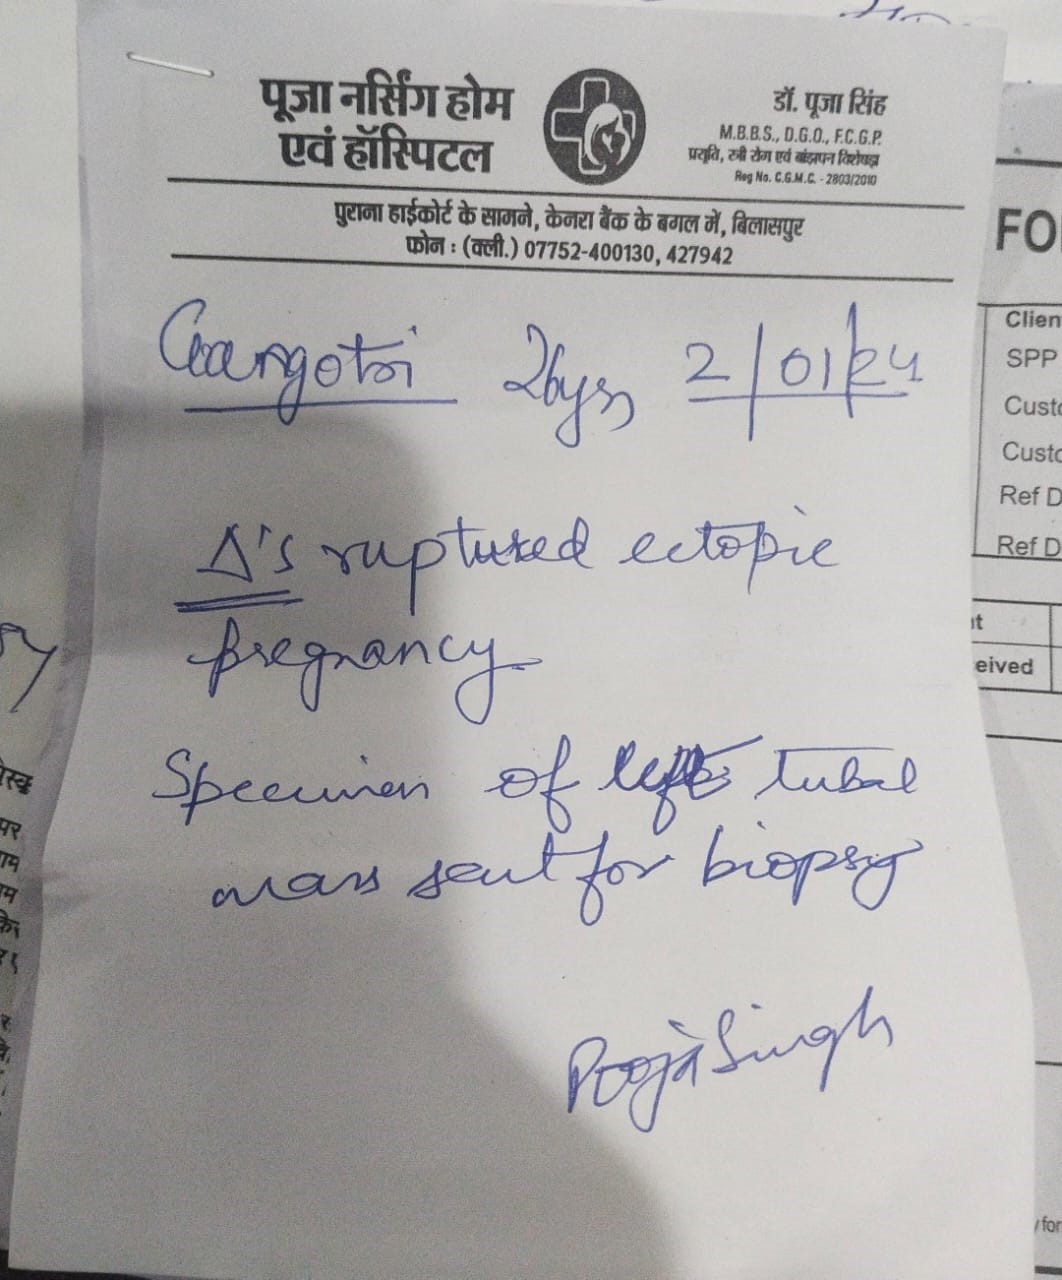 पूजा नर्सिंग होम
एवं हॉस्पिटल
डॉ. पूजा सिंह
M.B.B.S., D.G.O., F.C.G.P.
प्रसूति, स्त्री रोग एवं बांझपन विशेषज्ञ
Reg No. C.G.M.C. - 2803/2010
पुराना हाईकोर्ट के सामने, केनरा बैंक के बगल में, बिलासपुर
फोन : (क्ली.) 07752-400130, 427942
Gangotri 26yrs 2/01/24
Δ's ruptured ectopic
pregnancy
Specimen of left tubal
mass sent for biopsy
Pooja Singh
FO
Clien
SPP
Custo
Custo
Ref D
Ref D
eived
for